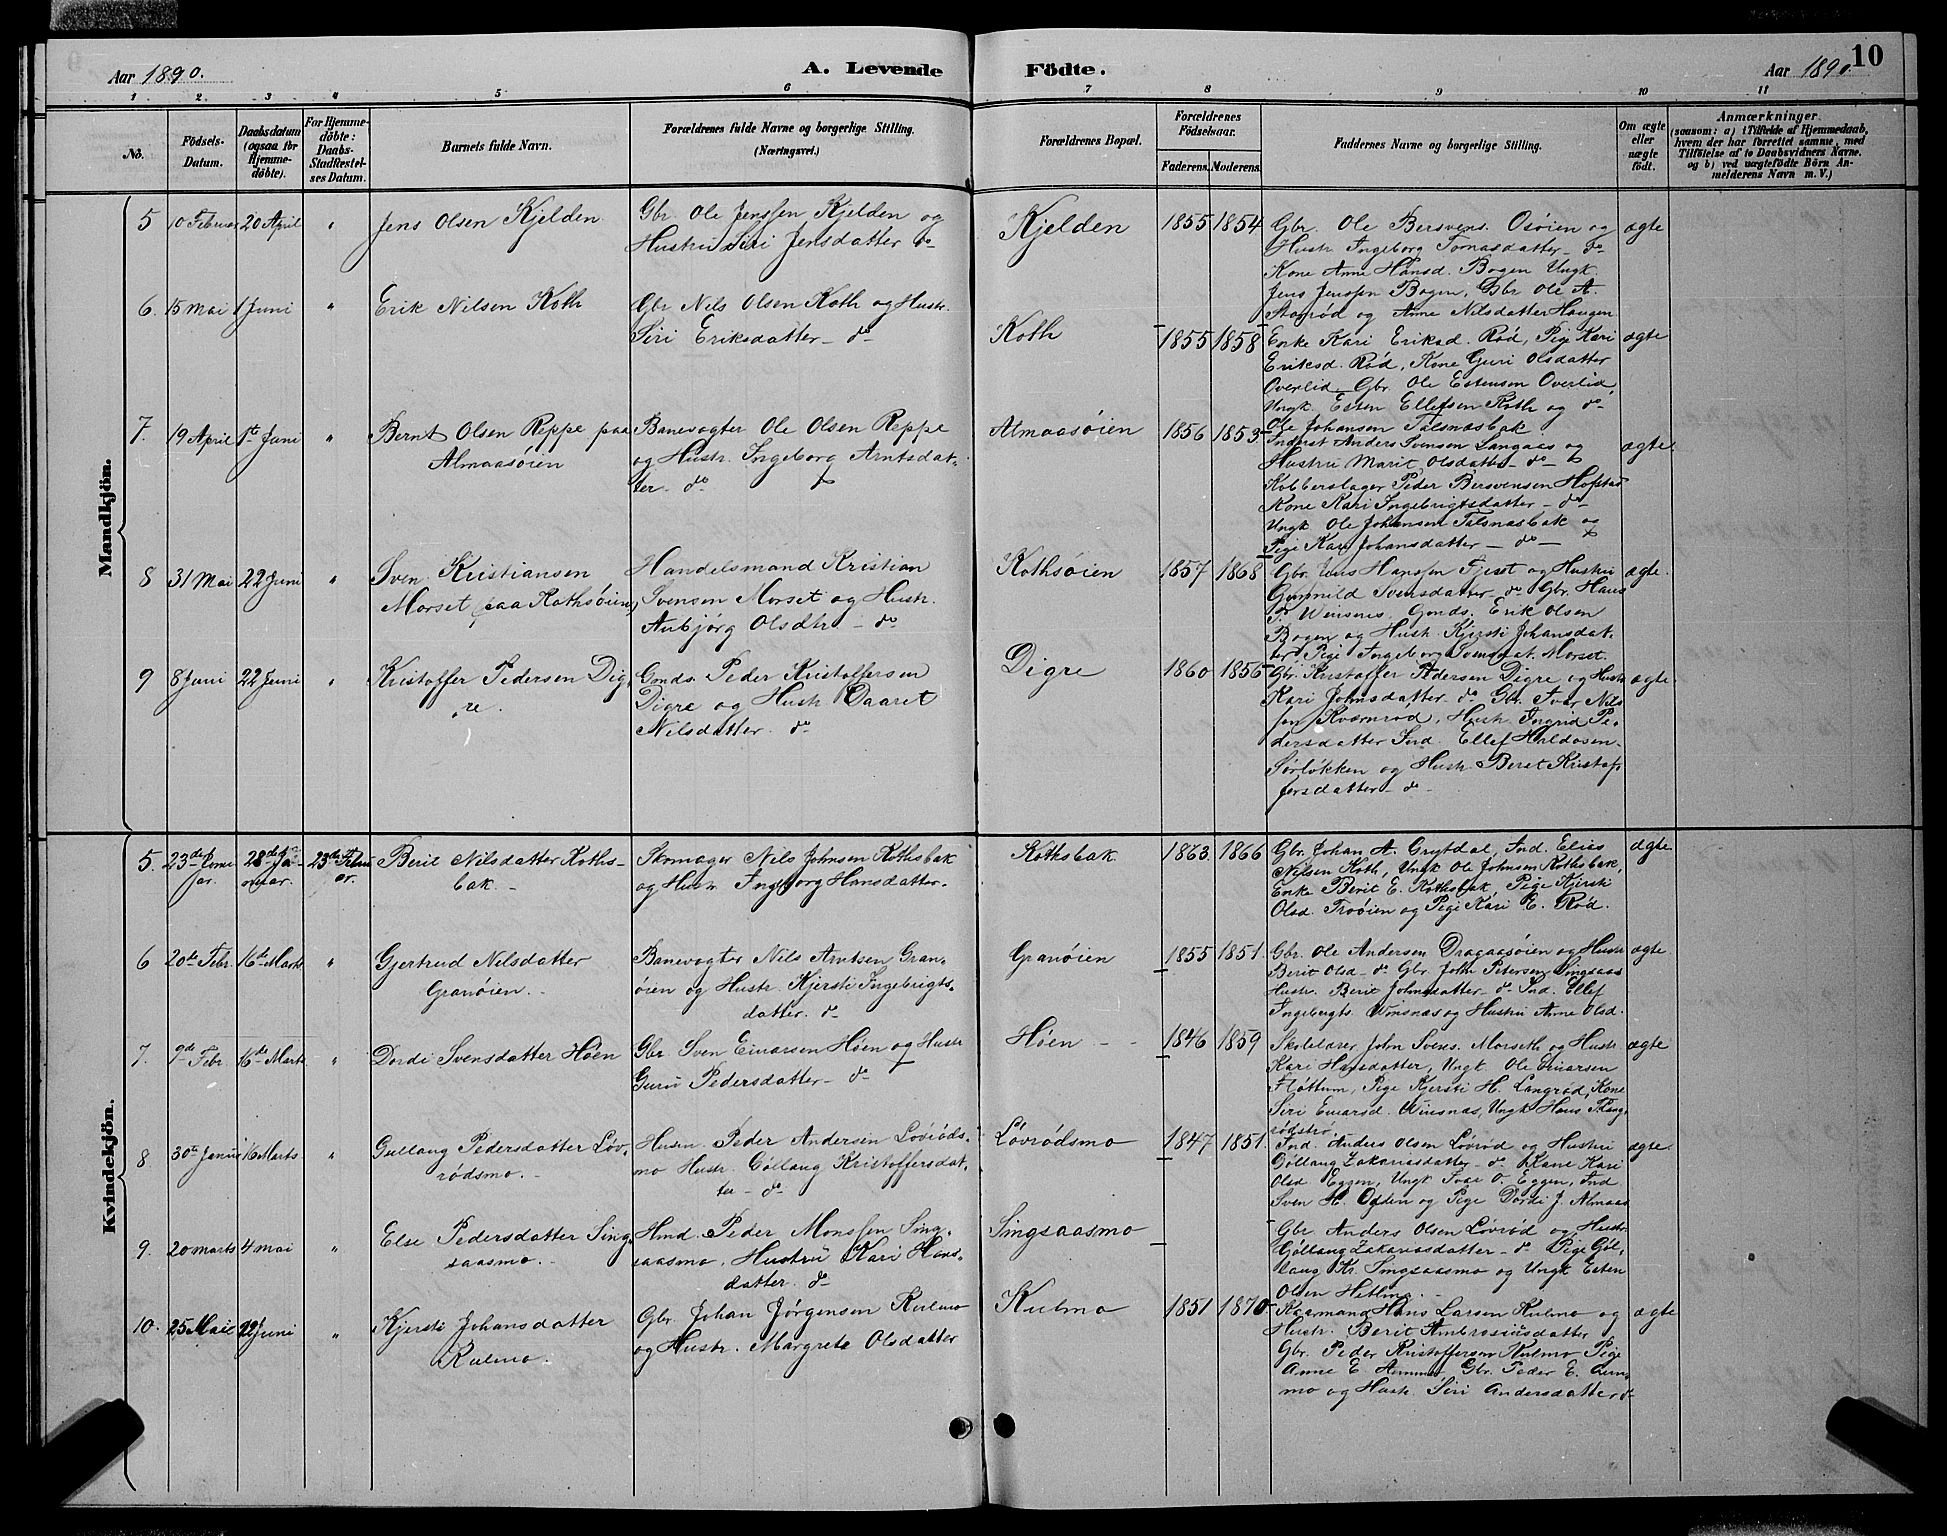 Aar 1890.
A. Levende
Födte.
Aar 1890.
10
1 2 3 4 5 6 7 8 9 10 11
No.
Födsels-
Datum.
Daabsdatum
(ogsaa for
Hjemme-
döbte).
For Hjemme-
döbte:
Daabs-
Stadfæstel-
ses Datum.
Barnets fulde Navn.
Forældrenes fulde Navne og borgerlige Stilling.
(Næringsvei.)
Forældrenes Bopæl.
Forældrenes
Födselsaar.
Faderens. Moderens.
Faddernes Navne og borgerlige Stilling.
Om ægte
eller
uægte
födt.
Anmærkninger
(saasom: a) i Tilfælde af Hjemmedaab,
hvem der har forrettet samme, med
Tilföielse af to Daabsvidners Navne,
og b) ved uægtefödte Börn An-
melderens Navn m. V.)
Mandkjön.
5 10 Februar 20 April " Jens Olsen Kjelden
Gbr. Ole Jenssen Kjelden og
Hustru Siri Jensdatter do
Kjelden 1855 1854
Gbr. Ole Bersvens. Osöien og
Hustr. Ingeborg Tomasdatter do
Kone Anne Hansd. Bogen Ungk.
Jens Jenssen Bogen, Gbr Ole A.
Storröd og Anne Nilsdatter Haugen
ægte
6. 15 Mai 1 Juni " Erik Nilsen Koth
Gbr Nils Olsen Koth og Hustr.
Siri Eriksdatter do
Koth 1855 1858
Enke Kari Eriksd. Röd, Pige Kari
Eriksd. Röd, Kone Guri Olsdatter
Overlid, Gbr. Ole Estensen Overlid,
Ungk. Esten Ellefsen Koth og do
Ole Johansen Talsnæsbak
ægte
7. 19 April 1ste Juni " Bernt Olsen Reppe paa
Almaasöien
Banevogter Ole Olsen Reppe
og Hustr. Ingeborg Arntsdat-
ter do
Almaasöien 1856 1853
Inderst Anders Svensen Langaas og
Hustru Marit Olsdatter do
Kobberslager Peder Bersvensen Hofstad
Kone Kari Ingebrigtsdatter do
Ungk Ole Johansen Talsnæsbak og
Pige Kari Johansdatter do
ægte.
8 31 Mai 22 Juni " Sven Kristiansen
Morset paa Kothsöien
Handelsmand Kristian
Svensen Morset og Hustr.
Anbjörg Olsdtr do
Kothsöien 1857 1868
Gbr. Jens Hanssen Fjeset og Hustru
Gunnild Svensdatter do Gbr. Hans
P. Winsnes, Gmds. Erik Olsen
Bogen og Hustr. Kjersti Johansdat-
ter Pige Ingeborg Svensdat. Morset.
ægte.
9 8 Juni 22 Juni " Kristoffer Pedersen Dig-
re.
Gmds. Peder Kristoffersen
Digre og Hustr Baaret
Nilsdatter. do
Digre 1860 1856
Gbr. Kristoffer Pedersen Digre og Hustr
Kari Johnsdatter do Gbr. Ivar Nils
sen Kværnröd, Hustr Ingrid Pe-
dersdatter Ind. Ellef Haldosen
Sörlökken og Hustr Beret Kristof
fersdatter do
ægte.
Kvindekjön.
5. 23de Janu
ar. 28de Ja-
nuar. 23de Febru
ar. Berit Nilsdatter Koths-
bak.
Skomager Nils Johnsen Kothsbak
og Hustr Ingeborg Hansdatter.
Kothsbak 1863. 1866
Gbr. Johan A. Grytdal, Ind. Elias
Nilsen Koth, Ungk Ole Johnsen Kothsbak,
Enke Berit E. Kothsbak, Pige Kjersti
Olsd. Troöien og Pige Kari E. Röd.
ægte
6 20de Febr. 16de Marts " Gjertrud Nilsdatter
Granöien.
Banevogter Nils Arntsen Gran-
öien og Hustr. Kjersti Ingebrigts-
datter. do
Granöien 1855 1851.
Gbr. Ole Andersen Dragaasöien og Hustr
Berit Olsd do Gbr. John Petersen Singsaas
Hustr. Berit Johnsdatter do Ind. Ellef
Ingebrigts. Winsnæs og Hustru Anne Olsd.
ægte.
7. 9de Febr. 16de Marts " Dordi Svensdatter Höen
Gbr. Sven Einarsen Höen og Hustr
Guru Pedersdatter do
Höen 1846 1859
Skolelærer John Svens. Morseth og Hustr.
Kari Hansdatter, Ungk Ole Einarsen
Flöttum, Pige Kjersti H. Langröd, Kone
Siri Einarsd. Winsnæs, Ungk Hans T.Lang
rödströ.
ægte
8 30te Januar 16 Marts " Gullaug Pedersdatter Löv-
rödsmo.
Husm. Peder Andersen Lövröds-
mo Hustr. Göllaug Kristoffersdat-
ter do
Lövrödsmo 1847 1851.
Ind. Anders Olsen Lövröd og Hustru
Göllaug Zakariasdatter do Kone Kari
Olsd Eggen, Ungk Ivar O. Eggen, Ind
Sven H. Odden og Pige Dordi J. Almaas
ægte.
9. 20 marts 4 mai " Else Pedersdatter Sing
saasmo.
Hmd. Peder Monssen Sing-
saasmo, Hustru Kari Hans-
datter. do
Singsaasmo
Gbr Anders Olsen Lövröd og Hustr.
Göllaug Zakariasdatter do Pige Göl-
laug Kr. Singsaasmo og Ungk Esten
Olsen Hetlmo.
10. 25 Mai 22 Juni " Kjersti Johansdatter
Kulmo.
Gbr. Johan Jörgensen Kulmo
og Hustr. Margrete Olsdatter
Kulmo 1851 1870
Kaarmand Hans Larsen Kulmo og
Hustr. Berit Ambrosiusdatter
Gbr. Peder Kristoffersen Kulmo Pige
Anne E. Gbr. Peder E. Kul
mo og Hustr. Siri Andersdatter do
ægte